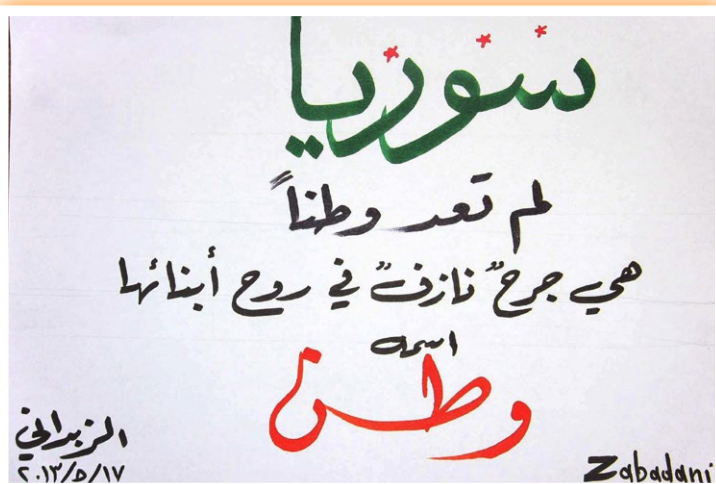 سوريا
لم تعد وطناً
هي جرحٌ نازفٌ في روح أبنائها
اسمه
وطن
الزبداني
٢٠١٣/٥/١٧
Zabadani